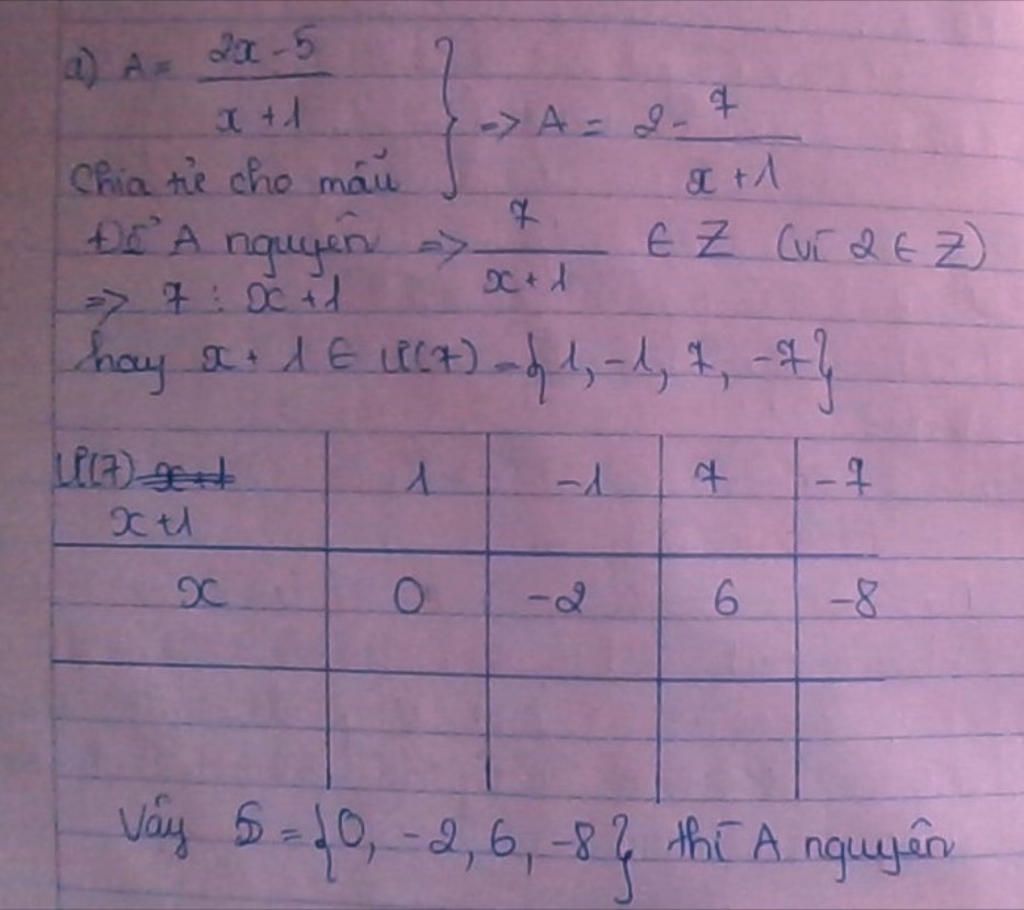 a) A = (2x - 5)/(x + 1) } => A = 2 - 7/(x + 1)
Chia tử cho mẫu
Để A nguyên => 7/(x + 1) ∈ Z (vì 2 ∈ Z)
=> 7 ⋮ x + 1
hay x + 1 ∈ Ư(7) = {1, -1, 7, -7}
Ư(7) x+1 | 1 | -1 | 7 | -7
x + 1
x | 0 | -2 | 6 | -8
Vậy S = {0, -2, 6, -8} thì A nguyên